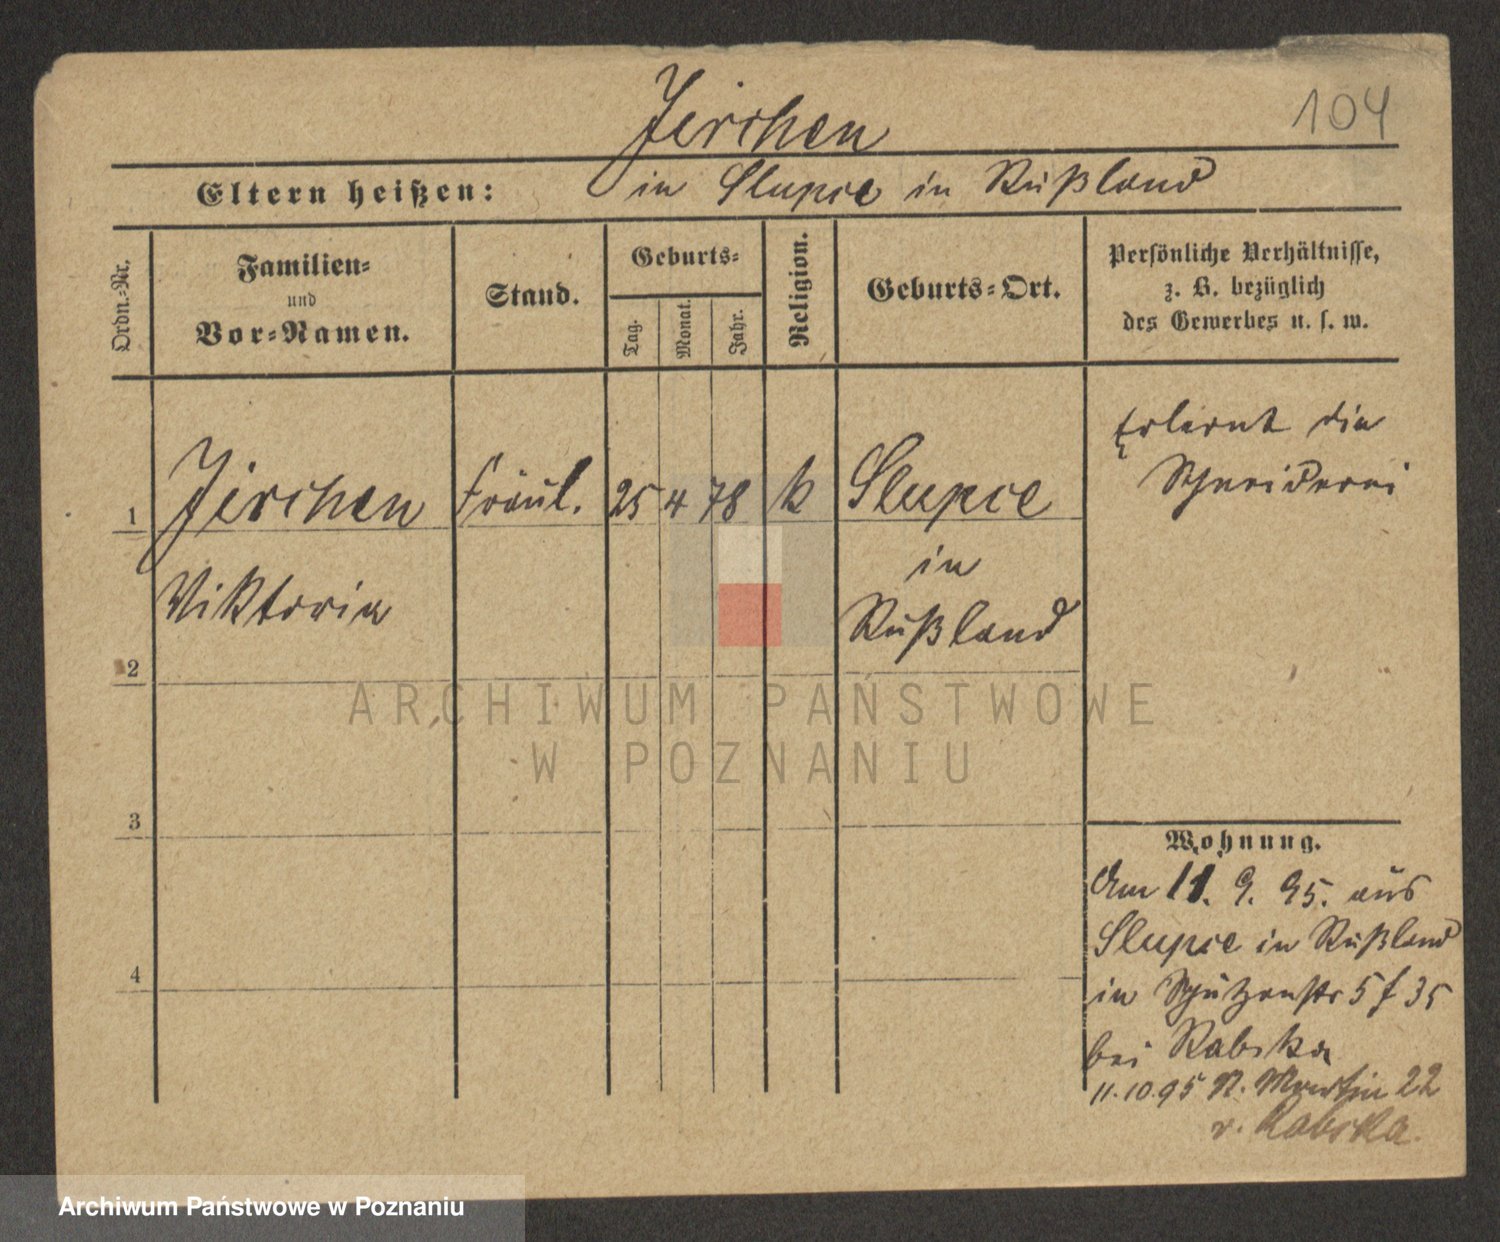 104
Jirchen
Eltern heißen: in Slupce in Rußland
Ordn.-Nr.
Familien-
und
Vor-Namen.
Stand.
Geburts-
Tag.
Monat.
Jahr.
Religion.
Geburts-Ort.
Persönliche Verhältnisse,
z. B. bezüglich
des Gewerbes u. s. w.
1
Jirchen
Viktoria
Fräul.
25 4 78
k
Slupce
in
Rußland
Erlernt die
Schneiderei
2
3
4
Wohnung.
Am 11. 9. 95. aus
Slupce in Rußland
in Schützenstr 5 f 35
bei Rabska
11.10.95 St. Martin 22
v. Rabska.
ARCHIWUM PAŃSTWOWE
W POZNANIU
Archiwum Państwowe w Poznaniu